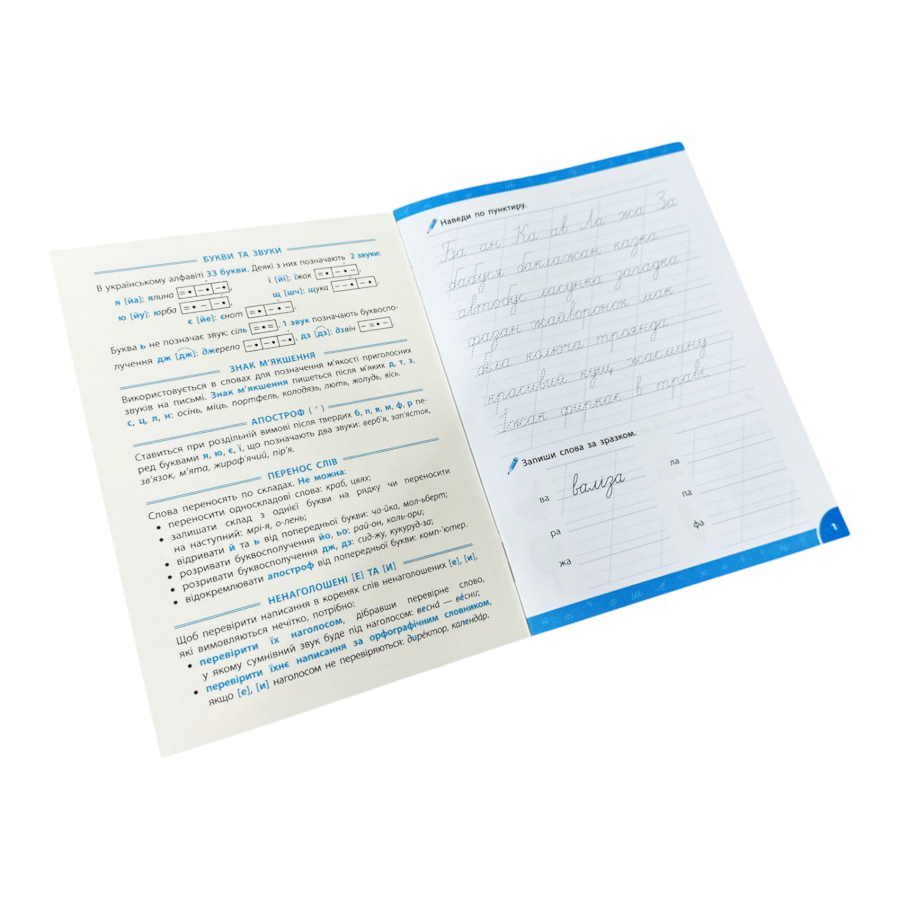 БУКВИ ТА ЗВУКИ
В українському алфавіті 33 букви. Деякі з них позначають 2 звуки:
я [йа]: ялина [=•|–•|–•], ї [йі]: їжак [=•|–•–],
ю [йу]: юрба [=•–|–•], щ [шч]: щука [––•|–•],
є [йе]: єнот [=•|–•–].
Буква ь не позначає звук: сіль [=•=], 1 звук позначають буквоспо-
лучення дж [дж]: джерело [–•|–•|–•], дз [дз]: дзвін [–=•–].
ЗНАК М'ЯКШЕННЯ
Використовується в словах для позначення м'якості приголосних
звуків на письмі. Знак м'якшення пишеться після м'яких д, т, з,
с, ц, л, н: осінь, міць, портфель, колодязь, лють, жолудь, вісь.
АПОСТРОФ ( ' )
Ставиться при роздільній вимові після твердих б, п, в, м, ф, р пе-
ред буквами я, ю, є, ї, що позначають два звуки: верб'я, зап'ясток,
зв'язок, м'ята, жираф'ячий, пір'я.
ПЕРЕНОС СЛІВ
Слова переносять по складах. Не можна:
• переносити односкладові слова: краб, цвях;
• залишати склад з однієї букви на рядку чи переносити
на наступний: мрі-я, о-лень;
• відривати й та ь від попередньої букви: ча-йка, мол-ьберт;
• розривати буквосполучення йо, ьо: рай-он, коль-ори;
• розривати буквосполучення дж, дз: сид-жу, кукуруд-за;
• відокремлювати апостроф від попередньої букви: комп-'ютер.
НЕНАГОЛОШЕНІ [Е] ТА [И]
Щоб перевірити написання в коренях слів ненаголошених [е], [и],
які вимовляються нечітко, потрібно:
• перевірити їх наголосом, дібравши перевірне слово,
у якому сумнівний звук буде під наголосом: весна́ — ве́сни;
• перевірити їхнє написання за орфографічним словником,
якщо [е], [и] наголосом не перевіряються: дире́ктор, календа́р.
Наведи по пунктиру.
Ба ан Ка ав Ла жа За
бабуся баклажан казка
автобус ласунка загадка
фазан жайворонок мак
біла колюча троянда
красивий кущ жасмину
Їжак фиркає в траві.
Запиши слова за зразком.
ва вамза ла
ра па
жа фа
1